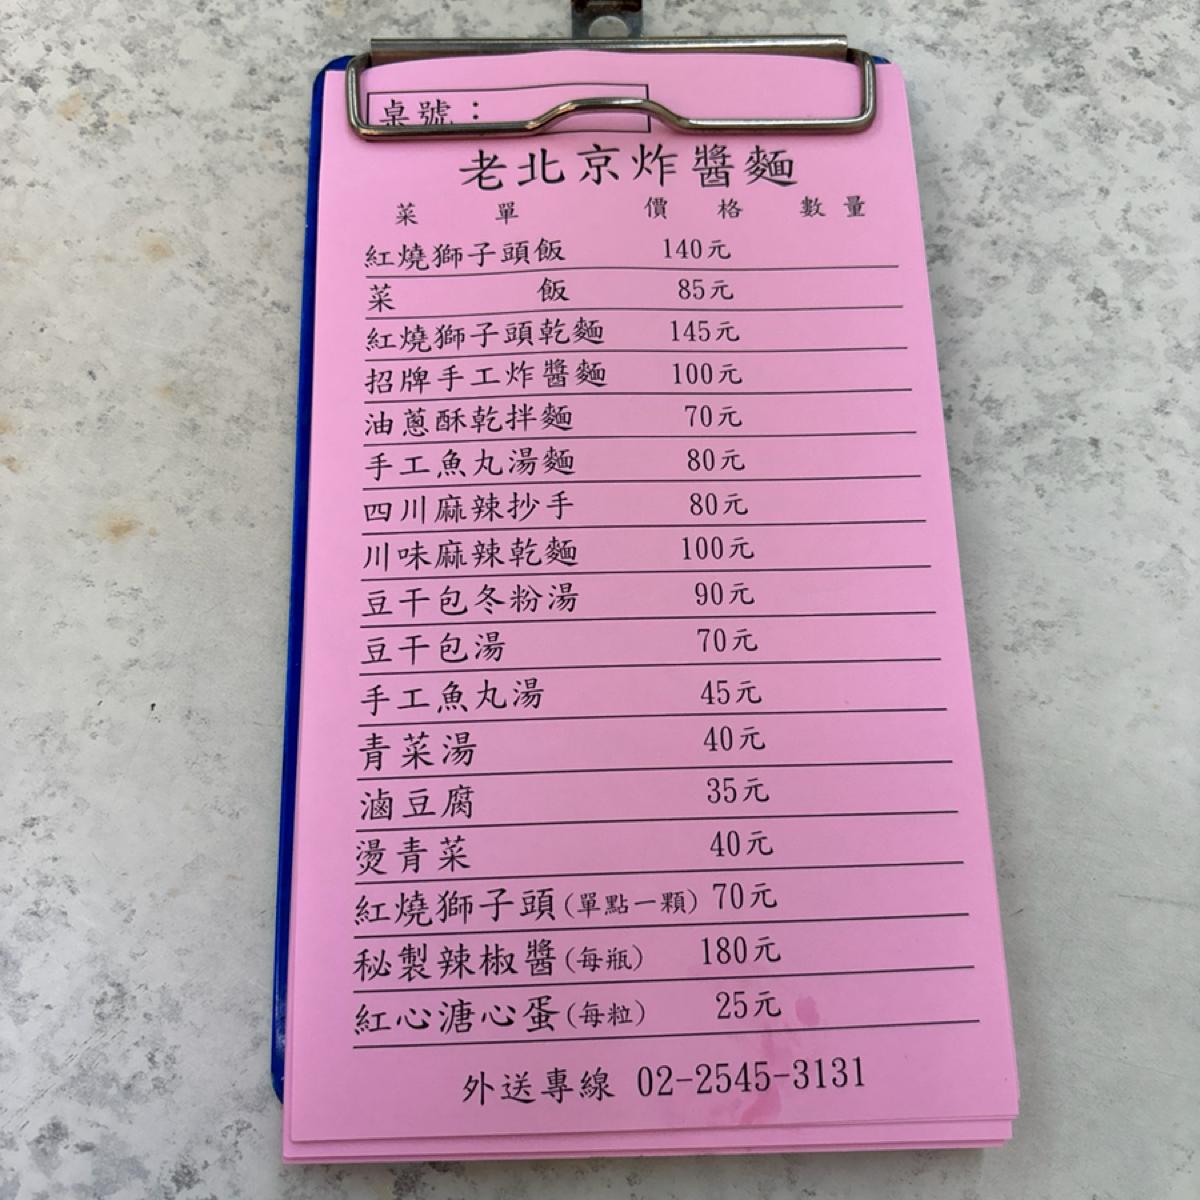 桌號：
老北京炸醬麵
菜 單 價 格 數 量
紅燒獅子頭飯 140元
菜 飯 85元
紅燒獅子頭乾麵 145元
招牌手工炸醬麵 100元
油蔥酥乾拌麵 70元
手工魚丸湯麵 80元
四川麻辣抄手 80元
川味麻辣乾麵 100元
豆干包冬粉湯 90元
豆干包湯 70元
手工魚丸湯 45元
青菜湯 40元
滷豆腐 35元
燙青菜 40元
紅燒獅子頭(單點一顆) 70元
秘製辣椒醬(每瓶) 180元
紅心溏心蛋(每粒) 25元
外送專線 02-2545-3131